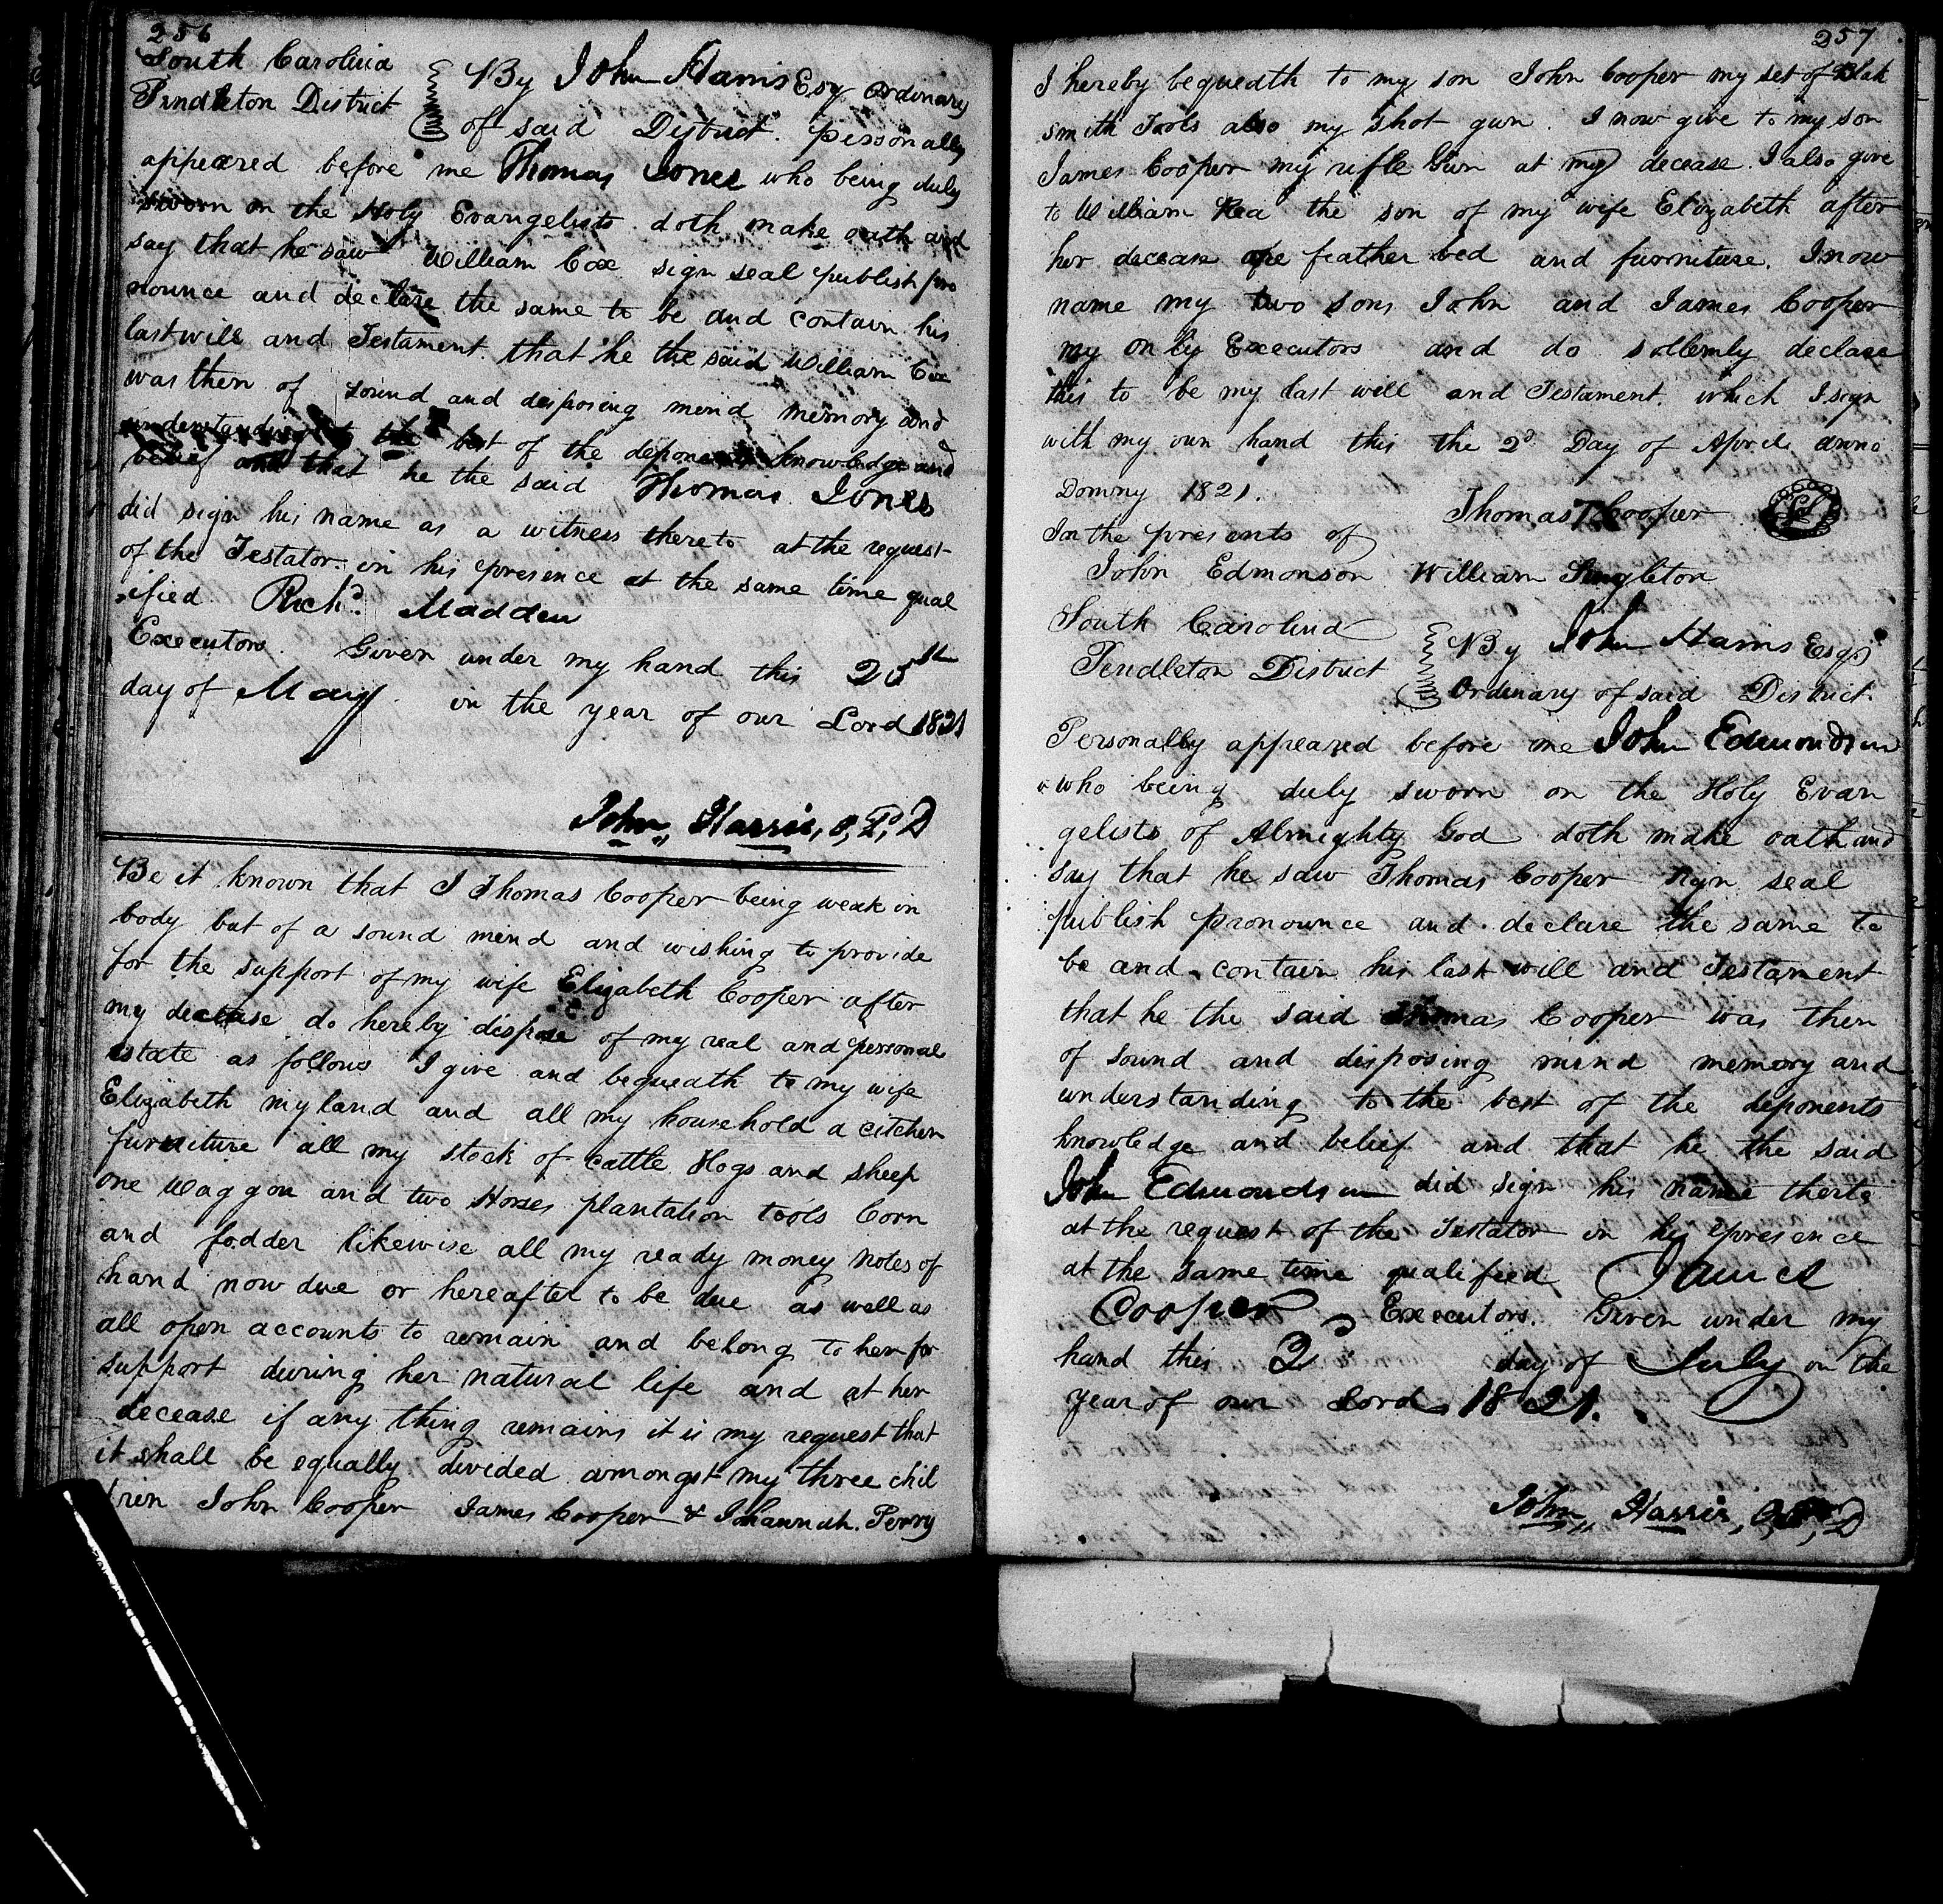 256
South Carolina
Pendleton District
By John Harris Esq Ordinary
of said District. personally
appeared before me Thomas Jones who being duly
sworn on the Holy Evangelists doth make oath and
say that he saw William Cox sign seal publish pro
nounce and declare the same to be and contain his
last will and Testament. that he the said William Cox
was then of sound and disposing mind memory and
understanding to the best of the deponents knowledge and
belief and that he the said Thomas Jones
did sign his name as a witness thereto at the request
of the Testator in his presence at the same time qual
ified Richd. Madden
Executors. Given under my hand this 25th
day of May in the year of our Lord 1821
John Harris, O, P, D
Be it known that I Thomas Cooper being weak in
body but of a sound mind and wishing to provide
for the support of my wife Elizabeth Cooper after
my decease do hereby dispose of my real and personal
estate as follows I give and bequeath to my wife
Elizabeth my land and all my household a citchen
furniture all my stock of cattle Hogs and sheep
one waggon and two Horses plantation tools Corn
and fodder likewise all my ready money notes of
hand now due or hereafter to be due as well as
all open accounts to remain and belong to her for
support during her natural life and at her
decease if any thing remains it is my request that
it shall be equally divided amongst my three chil
dren John Cooper James Cooper & Johannah. Perry
257
I hereby bequeath to my son John Cooper my set of Blak
smith Tools also my shot gun. I now give to my son
James Cooper my rifle Gun at my decease. I also give
to William Rea the son of my wife Elizabeth after
her decease one feather bed and furniture. I now
name my two sons John and James Cooper
my only Executors and do sollemly declare
this to be my last will and Testament. which I sign
with my own hand this the 2d Day of April anno
Dominy 1821.
Thomas T Cooper LS
In the presents of
John Edmonson William Singleton
South Carolina
Pendleton District
By John Harris Esqr
Ordinary of said District.
Personally appeared before me John Edmondson
who being duly sworn on the Holy Evan
gelists of Almighty God doth make oath and
say that he saw Thomas Cooper sign seal
publish pronounce and declare the same to
be and contain his last will and Testament
that he the said Thomas Cooper was then
of sound and disposing mind memory and
understanding to the best of the deponents
knowledge and belief and that he the said
John Edmondson did sign his name thereto
at the request of the Testator in his presence
at the same time qualified James
Cooper Executors. Given under my
hand this 2 day of July in the
year of our Lord 1821.
John Harris, O, P, D